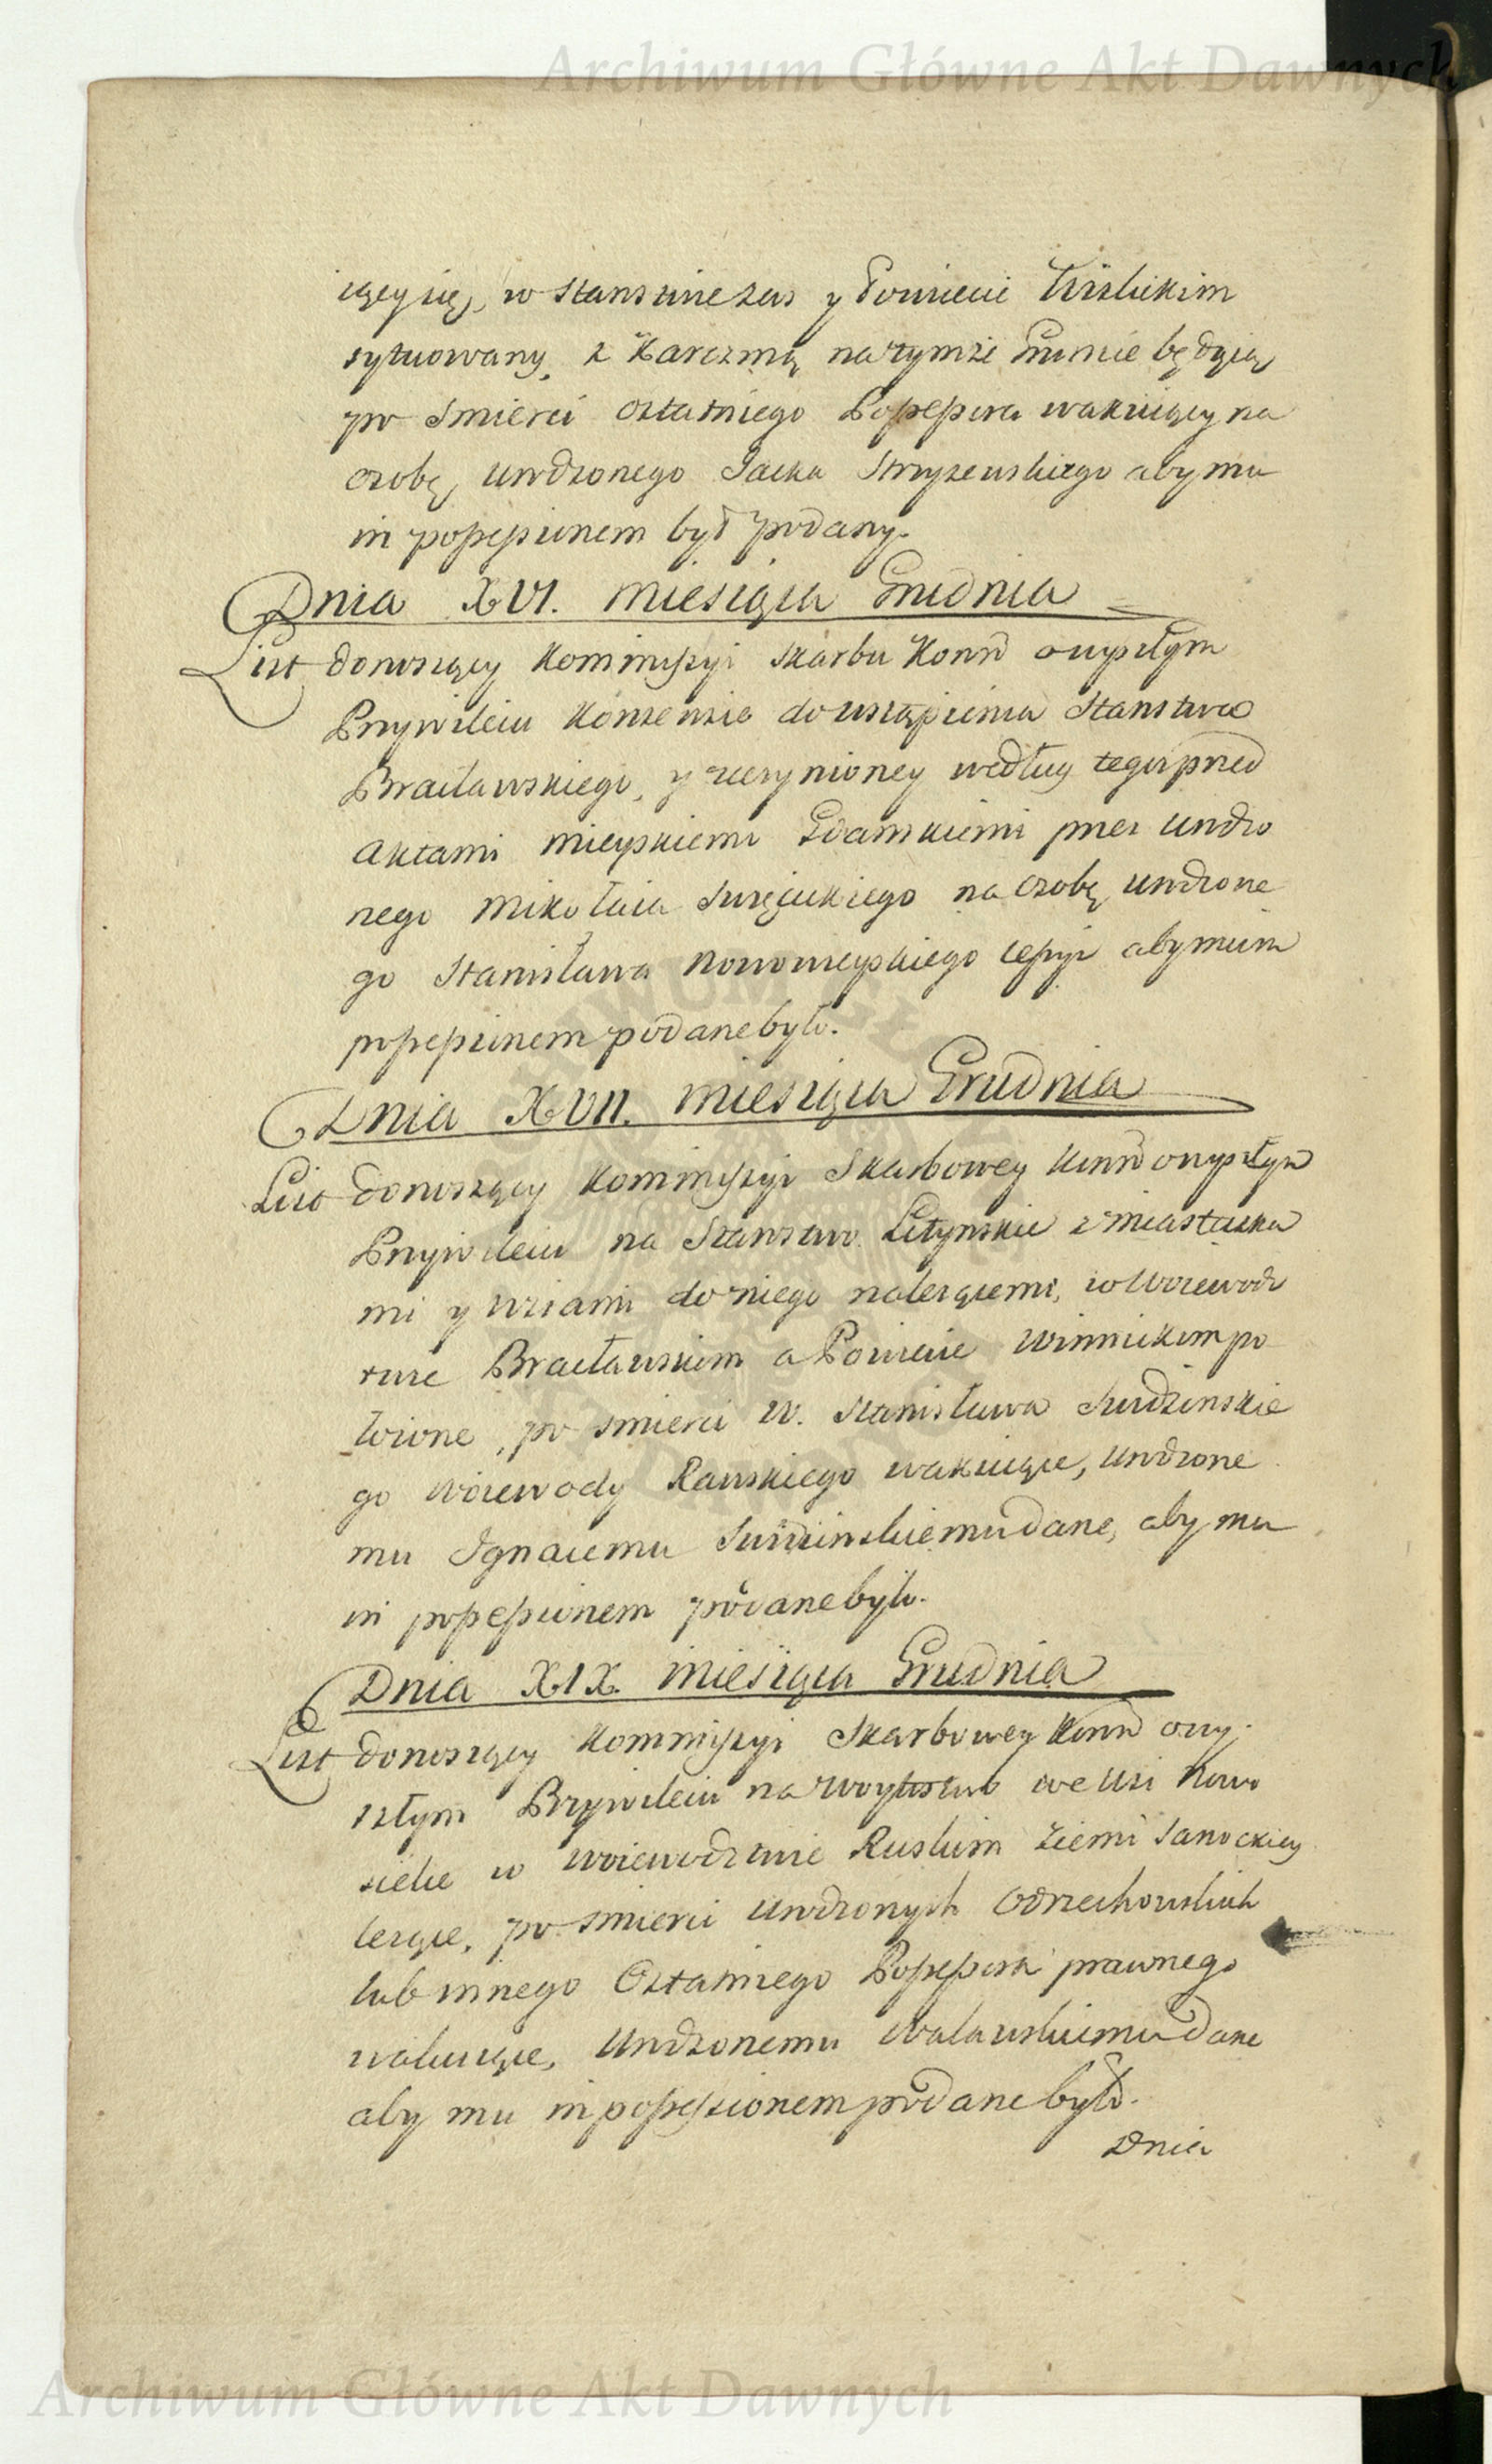 Archiwum Główne Akt Dawnych
iącey się, w Starostwie zas y Powiecie Wislickim
sytuowany, z Karczmą na tymże Gruncie będącą
po Smierci ostatniego Possessora wakuiący na
osobę Urodzonego Jacka Stryżewskiego aby mu
in possessionem był podany.
Dnia XVI. Miesiąca Grudnia
List donoszący Kommissyi Skarbu Konn o wyszłym
Przywileiu Konsensie do ustąpienia Starostwa
Bracławskiego, y uczynioney według tego przed
Aktami Mieyskiemi Gdanskiemi przez Urodzo
nego Mikołaia na Osobę Urodzone
go Stanisława Nowomieyskiego cessyi aby mu in
possessionem podane było.
Dnia XVII. Miesiąca Grudnia
List donoszący Kommissyi Skarbowey Konn o wyszłym
Przywileiu na Starostwo Lityńskie z miasteczka
mi y wsiami do niego należącemi, w Woiewodz
twie Bracławskim a Powiecie Winnickim po
łożone, po smierci W. Stanisława Swidzinskie
go Woiewody Rawskiego wakuiące, Urodzone
mu Ignacemu Swidzinskiemu dane, aby mu
in possessionem podane było.
Dnia XIX. Miesiąca Grudnia
List donoszący Kommissyi Skarbowey Konn o wy
szłym Przywileiu na Woytostwo we Wsi Nowo
sielce w Woiewodztwie Ruskim Ziemi Sanockiey
leżące, po smierci Urodzonych Odrzechowskich
lub innego Ostatniego Possessora prawnego
wakuiące, Urodzonemu Walawskiemu dane
aby mu in possessionem podane było.
Dnia
Archiwum Główne Akt Dawnych